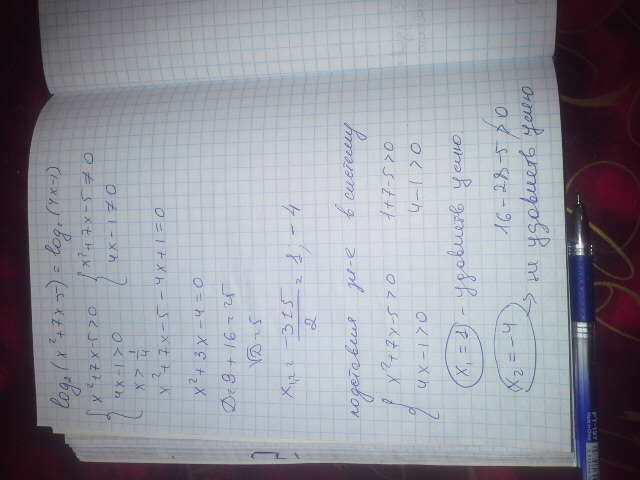 log₂(x²+7x-5) = log₂(4x-1)
{ x²+7x-5>0 { x²+7x-5≠0
4x-1>0 4x-1≠0
x > 1/4
x²+7x-5-4x+1=0
x²+3x-4=0
D=9+16=25
√D=5
x₁,₂ = (-3±5)/2 = 1; -4
подставим в систему
{ x²+7x-5>0 1+7-5>0
4x-1>0 4-1>0
x₁=1 - удовлет
x₂=-4 16-28-5 ≯ 0
→ не удовлет